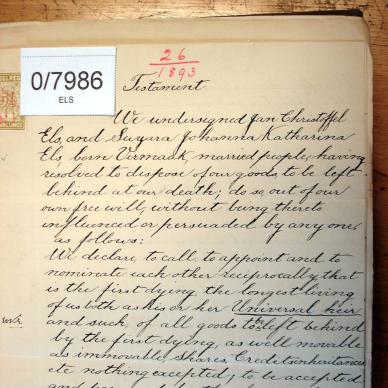 26
1893
0/7986
ELS
Testament
We undersigned Jan Christoffel
Els, and Susara Johanna Katharina
Els, born Vermaak, married people, having
resolved to dispose of our goods to be left
behind at our death; do so, out of our
own free will, without being thereto
influenced or persuaded by any one,
as follows:
We declare to call, to appoint and to
nominate each other reciprocally, that
is the first dying the longest living
of us both as his or her Universal heir
and such, of all goods to be left behind
by the first dying, as well movable
as immovable, Shares, Credits, inheritances
etc nothing excepted; to be accepted